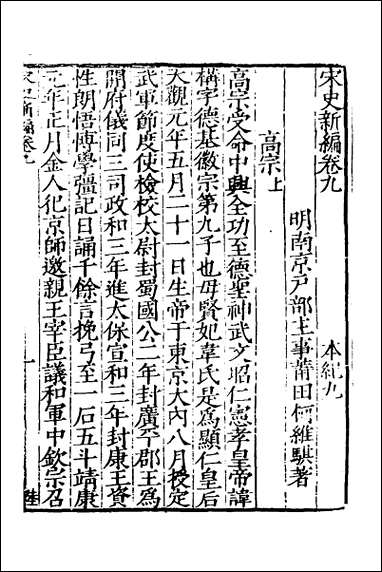 宋史新編卷九 本紀九
明南京戶部主事莆田柯維騏著
高宗上
高宗受命中興全功至德聖神武文昭仁憲孝皇帝諱
構字德基徽宗第九子也母賢妃韋氏是爲顯仁皇后
大觀元年五月二十一日生帝于東京大內八月授定
武軍節度使檢校太尉封蜀國公二年封廣平郡王爲
開府儀同三司政和三年進太保宣和三年封康王資
性朗悟博學彊記日誦千餘言挽弓至一石五斗靖康
元年正月金人犯京師邀親王宰臣議和軍中欽宗召
宋史新編卷九 一